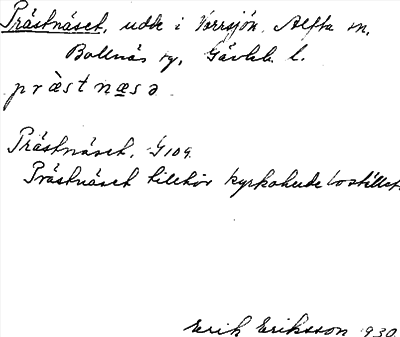 Prästnäset, udde i Norrsjön, Alfta sn,
Bollnäs sg, Gävleb. l.
præstnæsə
Prästnäset. G109.
Prästnäset tillhör kyrkoherdebostället
Erik Eriksson 1930.